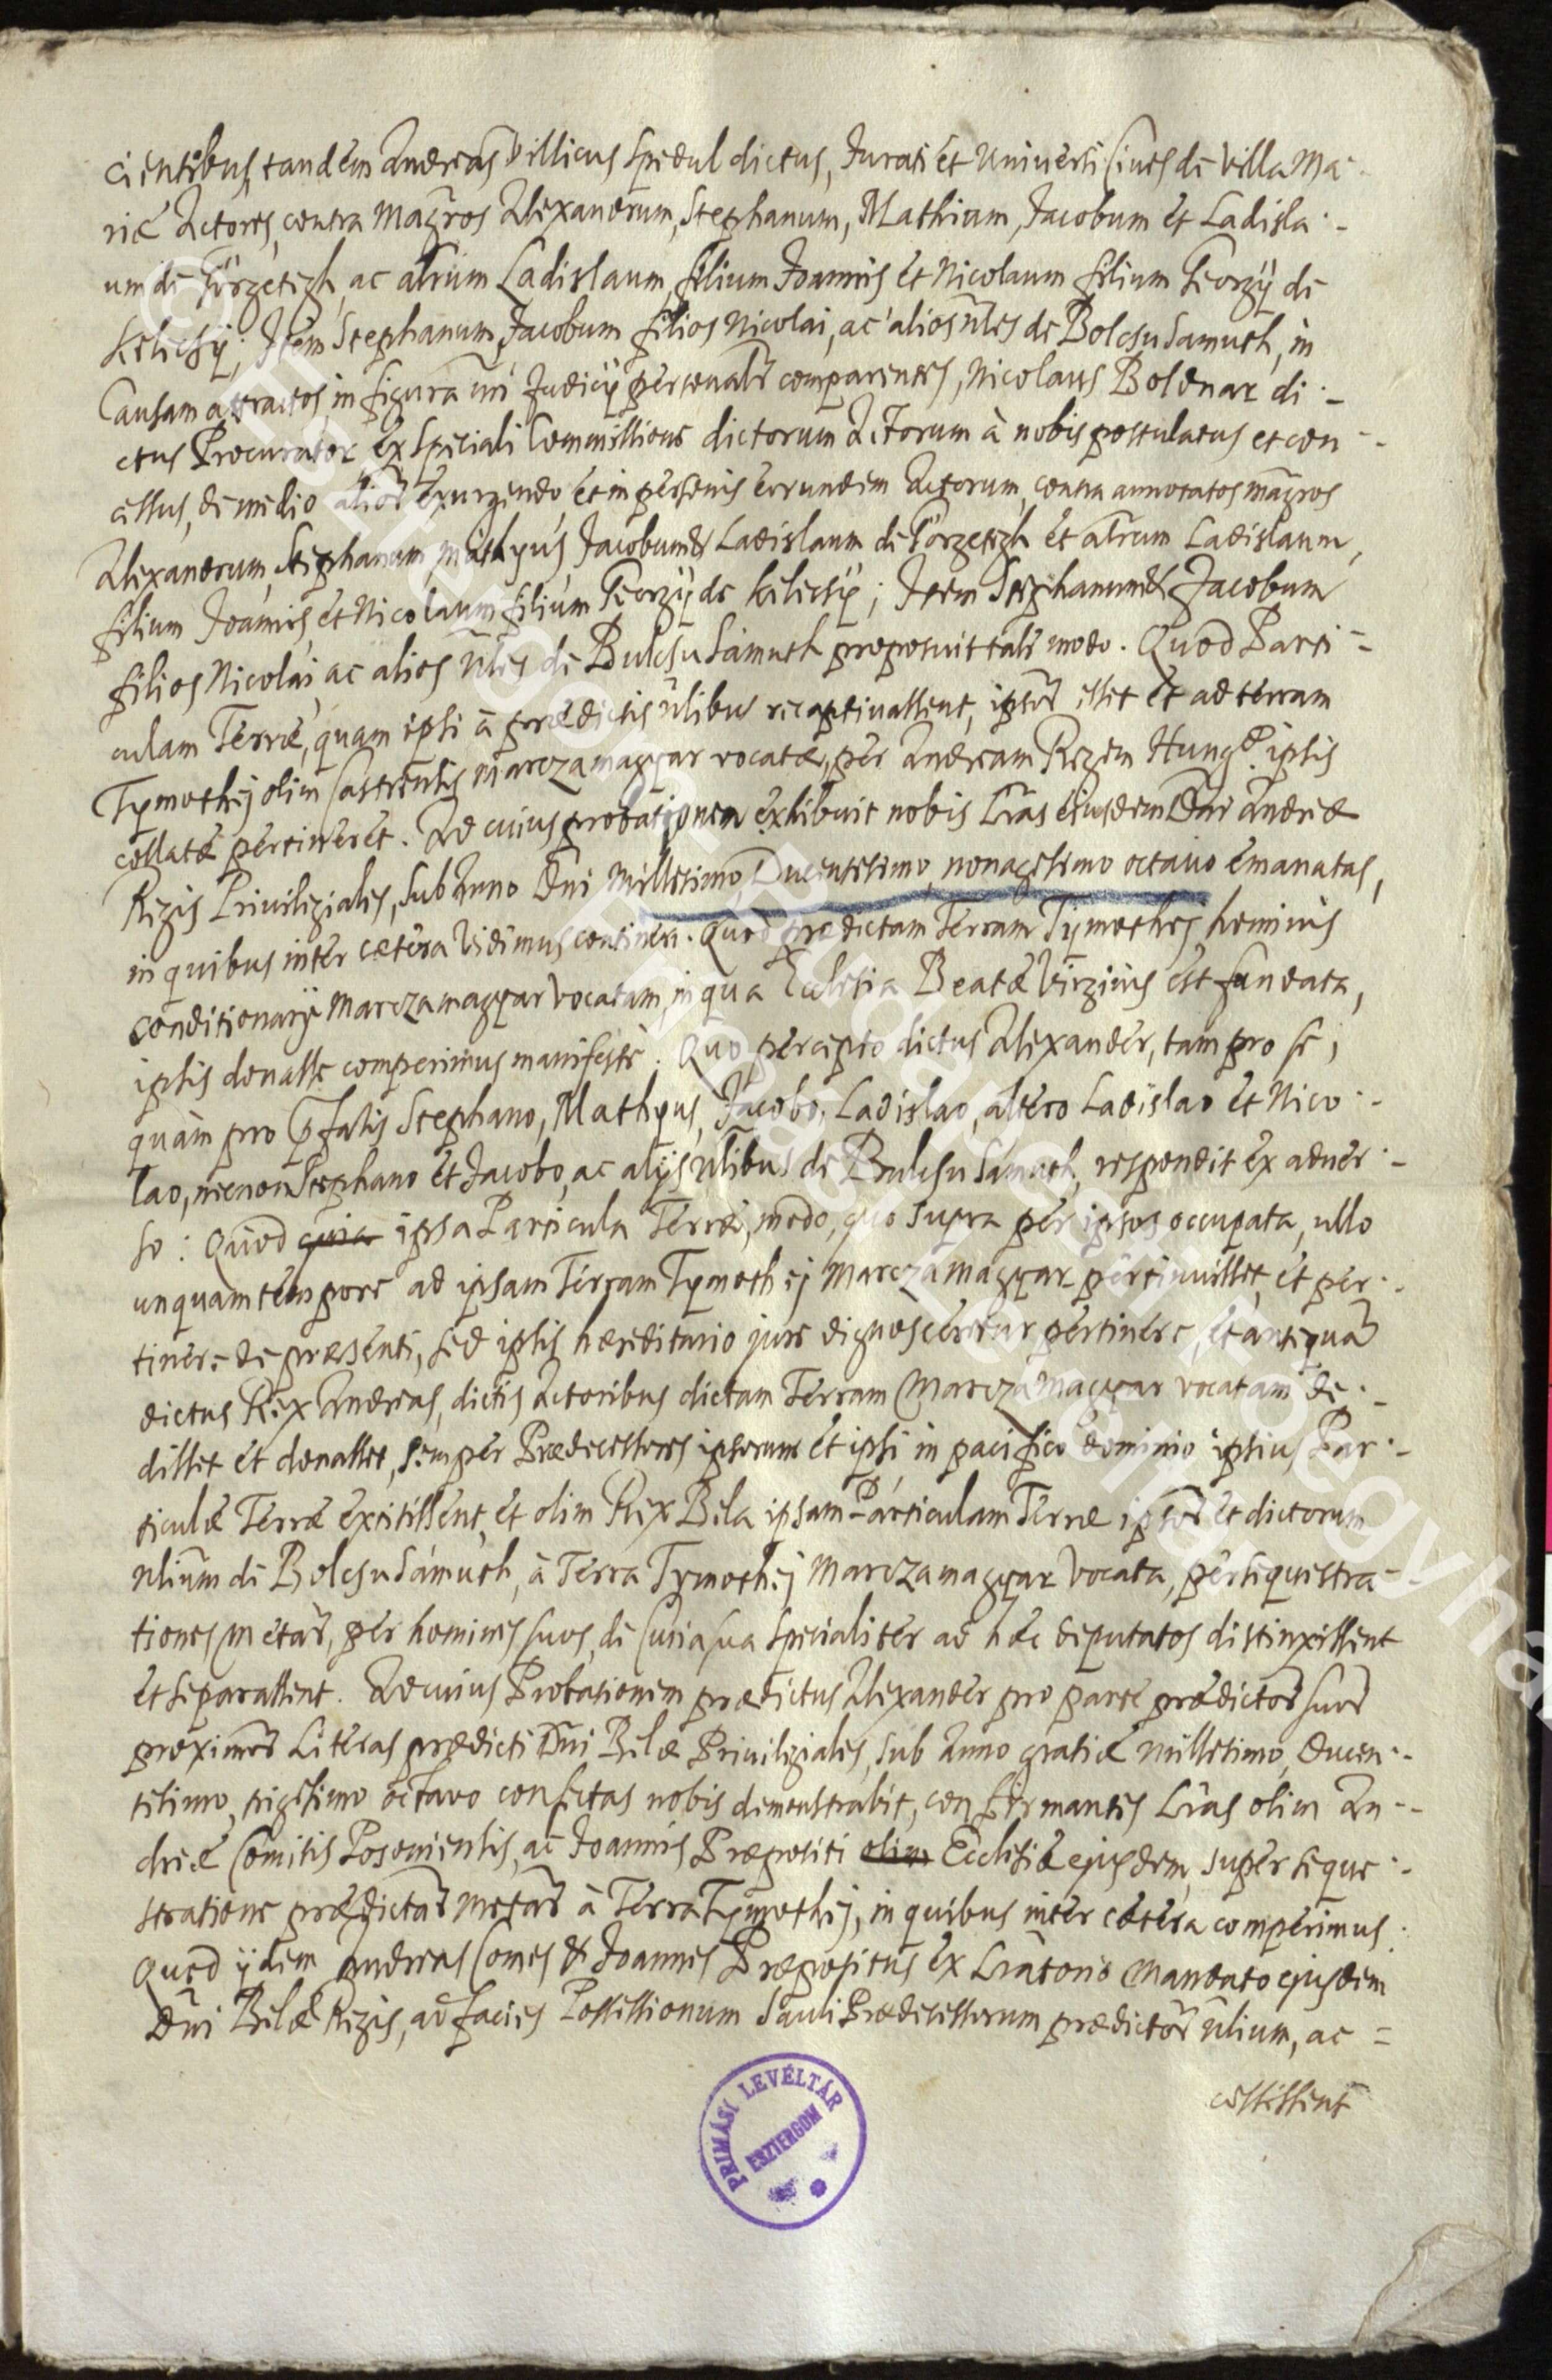 cientibus, tandem Andreas Villicus Spedul dictus, Jurati et Universi Cives de Villa Ma-
riæ Actores, contra Magros Alexandrum, Stephanum, Mathium, Jacobum et Ladisla-
um de Görgetegh, ac altrum Ladislaum, filium Joannis et Nicolaum filium Georgÿ de
Kelecsÿ; Item Stephanum, Jacobum filios Nicolai, ac alios nles de Bolcsu Samuth, in
Causam attractos in figura nri Judicÿ personalr comparentes, Nicolaus Boldnar di-
ctus Procurator ex speciali Commissione dictorum Actorum à nobis postulatus et con-
cessus, de medio alior exurgendo, et in personis eorundem Actorum, contra annotatos magros
Alexandrum, Stephanum, Mathyus, Jacobum & Ladislaum de Görgetegh et altrum Ladislaum,
filium Joannis, et Nicolaum filium Georgÿ de Kelecsÿ; Item Stephanum & Jacobum
filios Nicolai, ac alios nles de Bulcsu Samuth proposuit tali modo. Quod Parti-
culam Terræ, quam ipsi à prædictis nlibus recaptivassent, ipsor esset et ad terram
Tymothej olim Castrensis Marczamagyar vocatæ, per Andream Regem Hung. ipsis
collatæ pertineret. Ad cuius probationem exhibuit nobis Lras ejusdem Dni Andreæ
Regis Privilegiales, sub Anno Dni Millesimo, Ducentesimo, nonagesimo octavo emanatas,
in quibus inter cætera vidimus contineri. Quod prædictam Terram Tymothej hominis
conditionarÿ Marczamagyar vocatam, in qua Ecclesia Beatæ Virginis est fundata,
ipsis donasse comperimus manifestè. Quo percepto dictus Alexander, tam pro se,
quàm pro pfatis Stephano, Mathyus, Jacobo, Ladislao, altero Ladislao et Nico-
lao, necnon Stephano et Jacobo, ac alÿs nlibus de Bulcsu Samuth, respondit ex adver-
so: Quod quia ipsa Particula Terræ, modo, quo supra per ipsos occupata, ullo
unquam tempore ad ipsam Terram Tymothej Marczamagyar pertinuisset, et per-
tinere de præsenti, sed ipsis hæreditario jure dignosceretur pertinere, et antequam
dictus Rex Andreas, dictis Actoribus dictam Terram Marczamagyar vocatam de-
disset et donasset, semper Prædecessores ipsorum et ipsi in pacifico dominio ipsius Par-
ticulæ Terræ extitissent, et olim Rex Bela ipsam Particulam Terræ ipsor et dictorum
nlium de Bolcsu Sámuth, à Terra Tymothej Marczamagyar vocata, per sequestra-
tiones metar, per homines suos, de Curia sua specialiter ad hæc deputatos distinxissent
et separassent. Ad cuius Probationem prædictus Alexander pro parte prædictor suor
proximor Literas prædicti Dni Belæ Privilegiales, sub Anno gratiæ millesimo, Ducen-
tesimo, trigesimo octavo confectas nobis demonstrabit, confirmantes Lras olim An-
dreæ Comitis Posoniensis, ac Joannis Præpositi olim Ecclesiæ ejusdem, super seque-
stratione prædictar metar à Terra Tymothej, in quibus inter cætera comperimus.
Quod ÿdem Andreas Comes & Joannes Præpositus ex Lratorio Mandato ejusdem
Dni Belæ Regis, ad facies Possessionum Sauli Prædecessorum prædictor nlium, ac =
cessissent
PRIMÁSI LEVÉLTÁR
ESZTERGOM